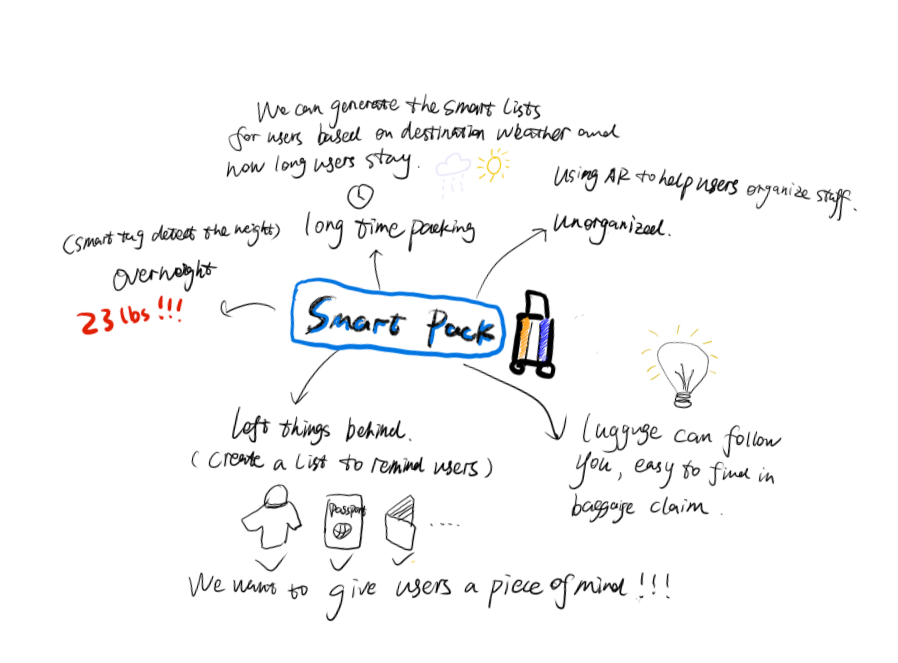 We can generate the smart Lists
for users based on destination weather and
how long users stay.
Using AR to help users organize stuff.
long time packing
unorganized.
(smart tag detect the weight)
overweight
23 lbs!!!
Smart Pack
Left things behind.
(create a list to remind users)
passport
....
Luggage can follow
you, easy to find in
baggage claim.
We want to give users a piece of mind!!!